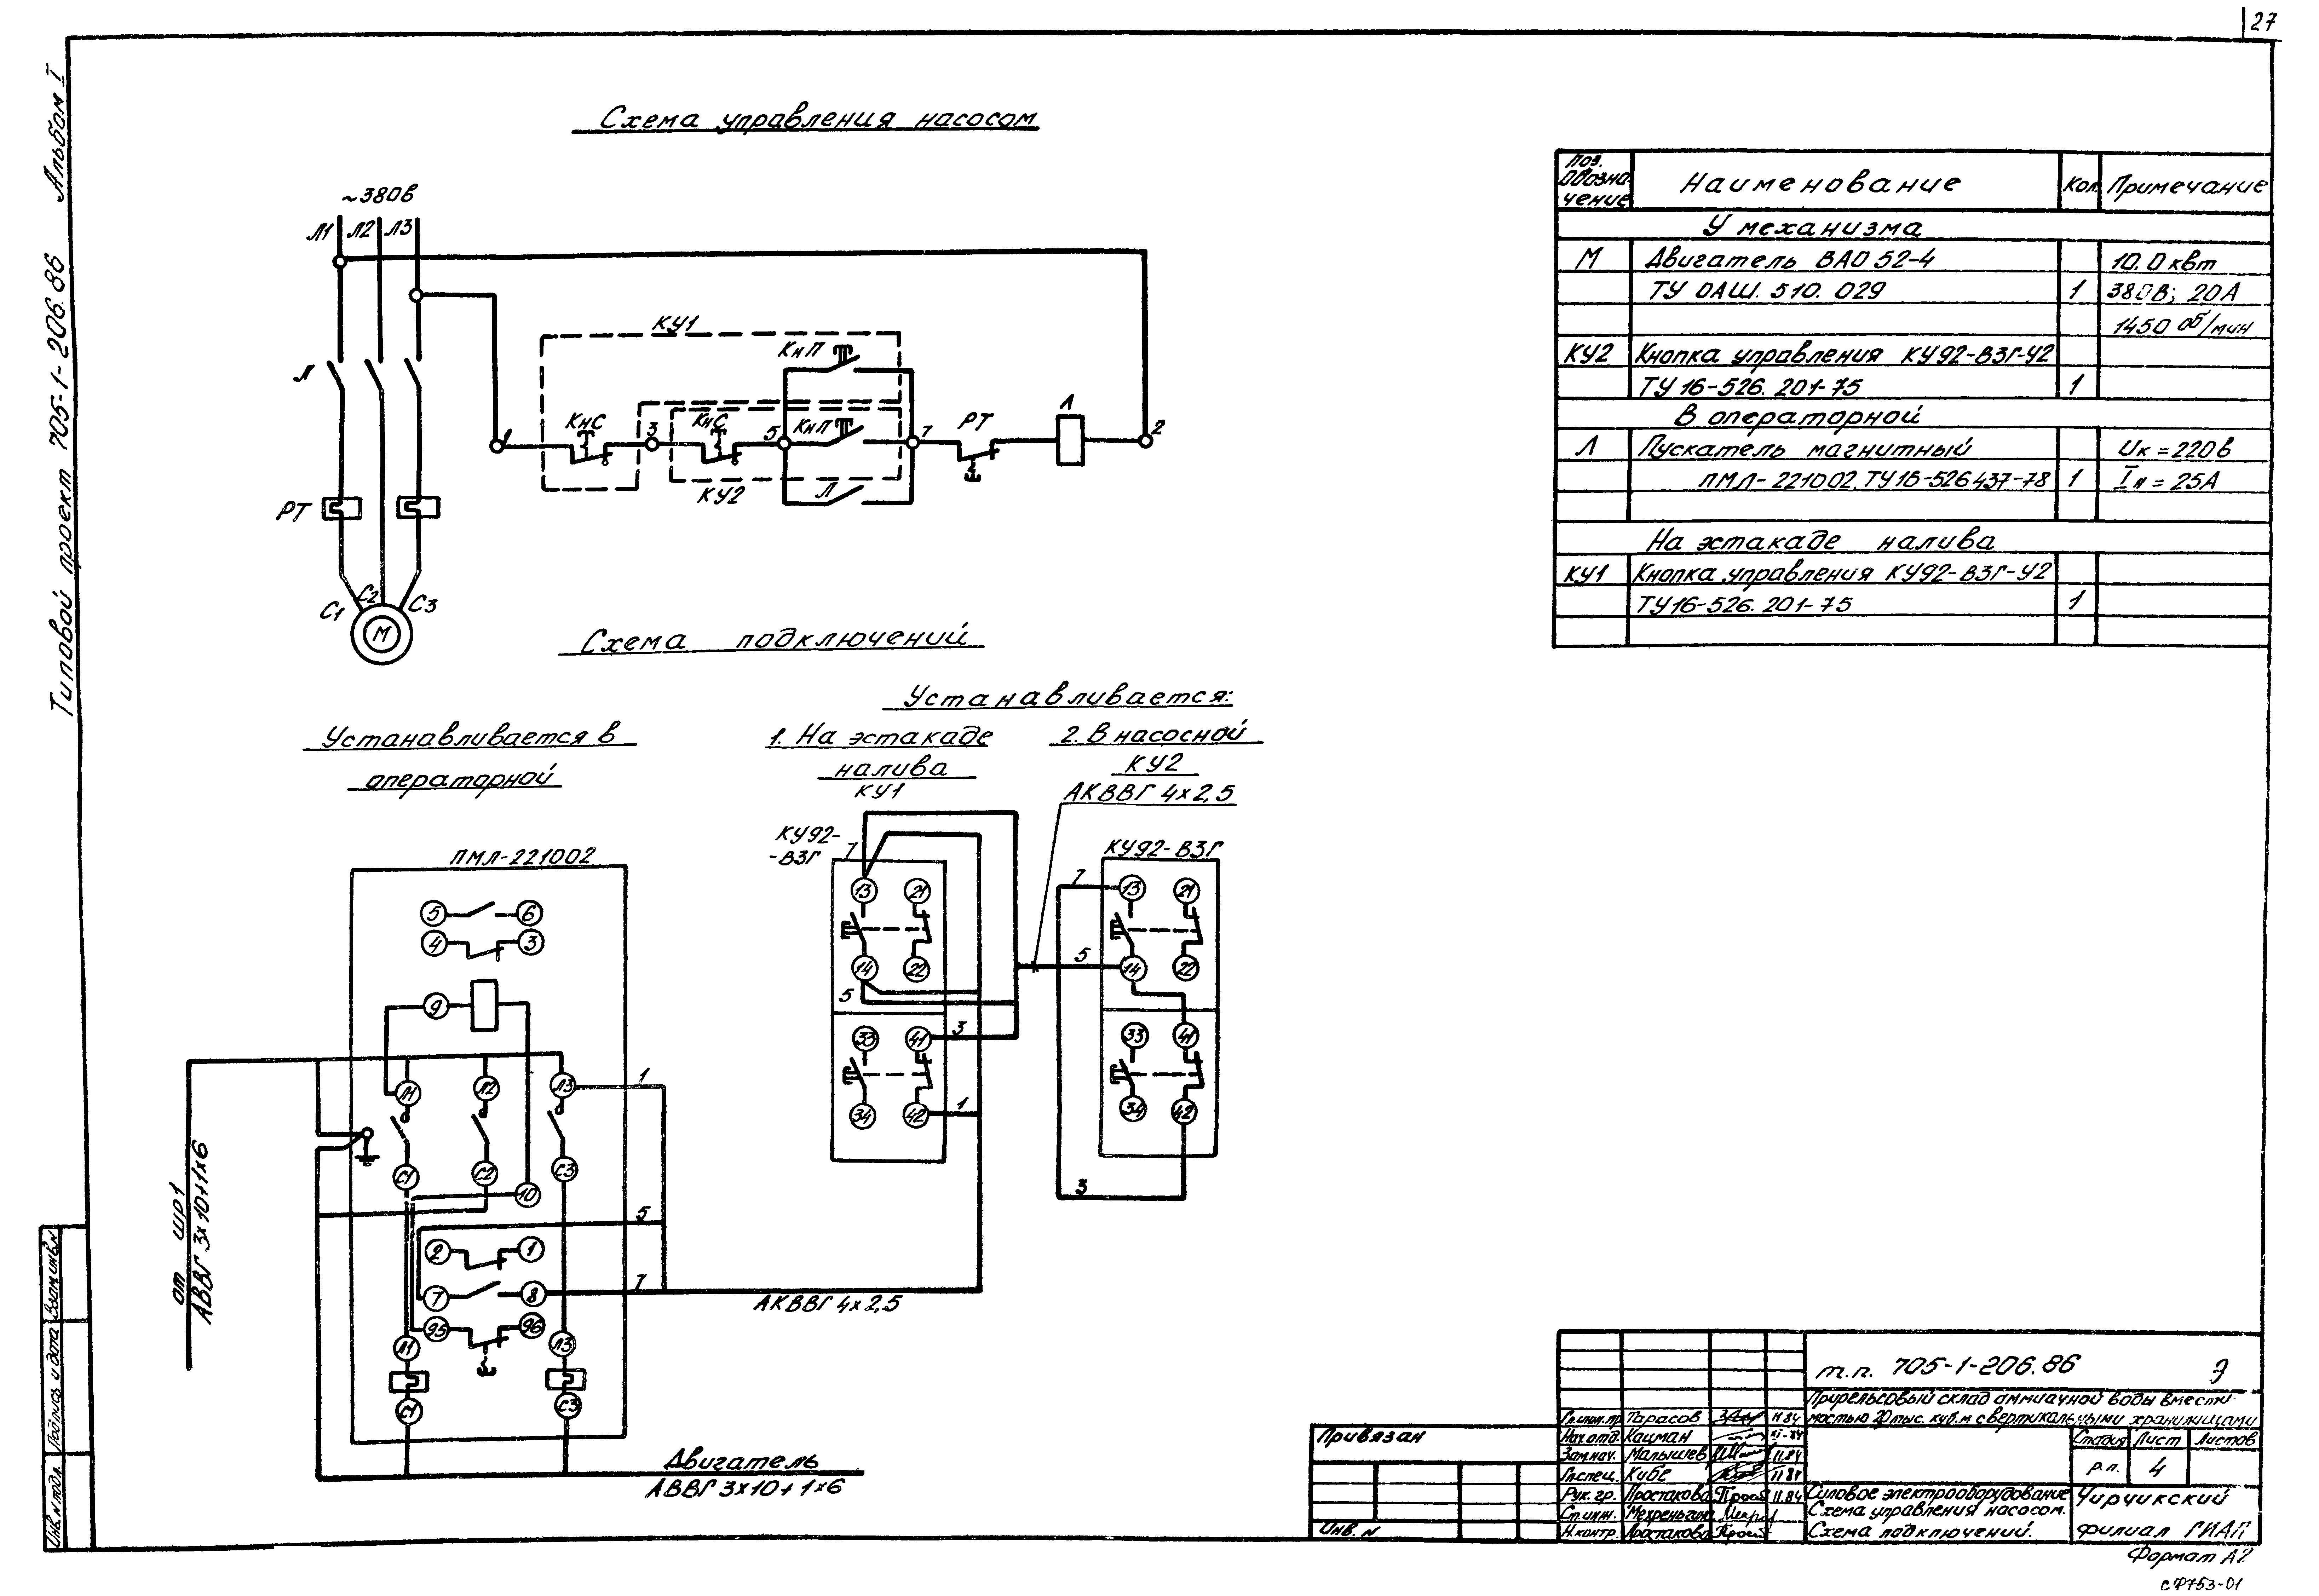 27
Типовой проект 705-1-206.86 Альбом I
Схема управления насосом
~380в
Л1 Л2 Л3
КУ1
КнП
Л
КнС
КнС
КнП
РТ
Л
1
3
5
7
2
КУ2
Л
РТ
С1 С2 С3
М
Поз. Обозна-
чение
Наименование
Кол.
Примечание
У механизма
М Двигатель ВАО 52-4 10.0 квт
ТУ ОАШ. 510. 029 1 380В; 20А
1450 об/мин
КУ2 Кнопка управления КУ92-ВЗГ-У2
ТУ 16-526. 201-75 1
В операторной
Л Пускатель магнитный Uк = 220в
ПМЛ-221002. ТУ16-526437-78 1 Iн = 25А
На эстакаде налива
КУ1 Кнопка управления КУ92-ВЗГ-У2
ТУ16-526. 201-75 1
Схема подключений
Устанавливается в
операторной
Устанавливается:
1. На эстакаде
налива
КУ1
2. В насосной
КУ2
АКВВГ 4х2,5
КУ92-
-ВЗГ
7
13 21
14 22
5
33 41
3
34 42
1
КУ92-ВЗГ
7
13 21
5
14 22
33 41
34 42
3
ПМЛ-221002
5 6
4 3
9
Л1 Л2 Л3
1
С1 С2 С3
10
5
2 1
7 8
7
95 96
Л1 Л3
С1 С3
от шр1
АВВГ 3х10+1х6
АКВВГ 4х2,5
Двигатель
АВВГ 3х10+1х6
Инв.N подл. Подпись и дата Взам.инв.N
Привязан
Инв. N
т.п. 705-1-206.86 Э
Прирельсовый склад аммиачной воды вмести-
мостью 20 тыс. куб.м с вертикальными хранилищами
Гл.инж.пр. Тарасов 11.84
Нач.отд. Кацман 11.84
Зам.нач. Малышев 11.84
Гл.спец. Кибе 11.84
Рук. гр. Простакова 11.84
Ст.инж.
Н.контр. Простакова
Стадия Лист Листов
р.п. 4
Силовое электрооборудование
Схема управления насосом.
Схема подключений.
Чирчикский
филиал ГИАП
Формат А2
сФ753-01